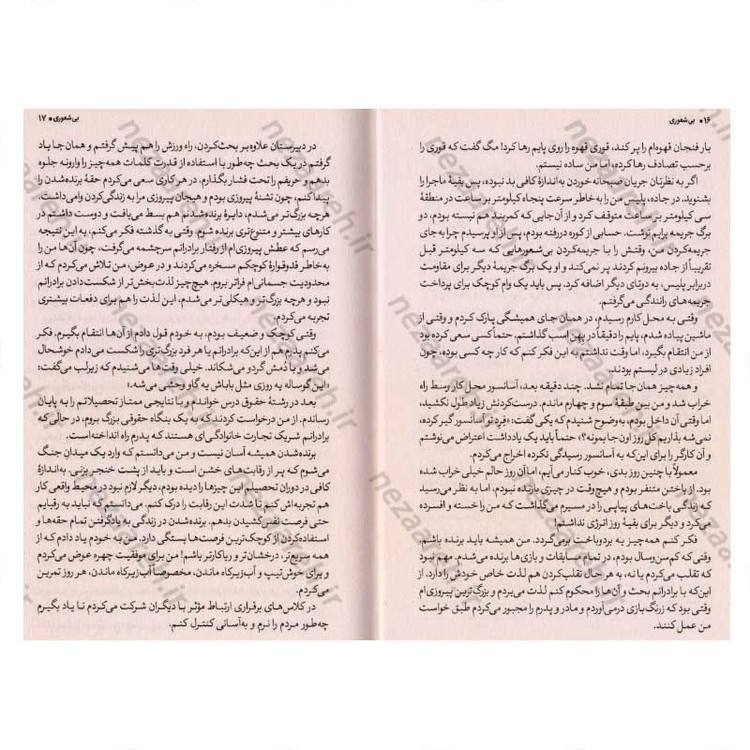 ۱۶ • بی‌شعوری
بار فنجان قهوه‌ام را پر کند، قوری قهوه را روی پایم رها کرد! مگ گفت که قوری را
برحسب تصادف رها کرده، اما من ساده نیستم.
اگر به نظرتان جریان صبحانه خوردن به‌اندازهٔ کافی بد نبوده، پس بقیهٔ ماجرا را
بشنوید. در جاده، پلیس من را به خاطر سرعت پنجاه کیلومتر بر ساعت در منطقهٔ
سی کیلومتر بر ساعت متوقف کرد و از آن‌جایی که کمربند هم نبسته بودم، دو
برگ جریمه برایم نوشت. حسابی از کوره دررفته بودم، پس از او پرسیدم چرا به‌جای
جریمه‌کردن من، وقتش را با جریمه‌کردن بی‌شعورهایی که سه کیلومتر قبل
تقریباً از جاده بیرونم کردند پر نمی‌کند و او یک برگ جریمهٔ دیگر برای مقاومت
دربرابر پلیس، به دوتای دیگر اضافه کرد. پس باید یک وام کوچک برای پرداخت
جریمه‌های رانندگی می‌گرفتم.
وقتی به محل کارم رسیدم، در همان جای همیشگی پارک کردم و وقتی از
ماشین پیاده شدم، پایم را دقیقاً در پهن اسب گذاشتم. حتماً کسی سعی کرده بود
از من انتقام بگیرد، اما وقت نداشتم به این فکر کنم که کار چه کسی بوده، چون
افراد زیادی در لیستم بودند.
و همه چیز همان جا تمام نشد. چند دقیقه بعد، آسانسور محل کار وسط راه
خراب شد و من بین طبقهٔ سوم و چهارم ماندم. درست‌کردنش زیاد طول نکشید،
اما وقتی آن داخل بودم، به‌وضوح شنیدم که یکی گفت: «فرد تو آسانسور گیر کرده،
نمی‌شه بذاریم کل روز اون‌جا بمونه؟»، حتماً باید یک یادداشت اعتراض می‌نوشتم
و آن کارگر را برای این‌که به آسانسور رسیدگی نکرده اخراج می‌کردم.
معمولاً با چنین روز بدی، خوب کنار می‌آیم، اما آن روز حالم خیلی خراب شده
بود. از باختن متنفر بودم و هیچ‌وقت در چیزی بازنده نبودم، اما به نظر می‌رسید
که زندگی باخت‌های پیاپی را در مسیرم می‌گذاشت که من را خسته و افسرده
می‌کرد و دیگر برای بقیهٔ روز انرژی نداشتم!
فکر کنم همه‌چیز به بردوباخت برمی‌گردد. من همیشه باید برنده باشم.
وقتی که کم‌سن‌وسال بودم، در تمام مسابقات و بازی‌ها برنده می‌شدم. مهم نبود
که تقلب می‌کردم یا نه، به هر حال تقلب‌کردن هم لذت خاص خودش را دارد. از
این‌که با برادرانم بحث و آن‌ها را محکوم کنم لذت می‌بردم و بزرگ‌ترین پیروزی‌ام
وقتی بود که زرنگ‌بازی درمی‌آوردم و مادر و پدرم را مجبور می‌کردم طبق خواست
من عمل کنند.
بی‌شعوری • ۱۷
در دبیرستان علاوه‌بر بحث‌کردن، راه ورزش را هم پیش گرفتم و همان جا یاد
گرفتم در یک بحث چه‌طور با استفاده از قدرت کلمات همه‌چیز را وارونه جلوه
بدهم و حریفم را تحت فشار بگذارم. در هر کاری سعی می‌کردم حقهٔ برنده‌شدن را
پیدا کنم، چون تشنهٔ پیروزی بودم و هیجان پیروزی مرا به زندگی‌کردن وامی‌داشت.
هرچه بزرگ‌تر می‌شدم، دایرهٔ برنده‌شدنم هم بسط می‌یافت و دوست داشتم در
کارهای بیشتر و متنوع‌تری برنده شوم. وقتی به گذشته فکر می‌کنم، به این نتیجه
می‌رسم که عطش پیروزی‌ام از رفتار برادرانم سرچشمه می‌گرفت، چون آن‌ها من را
به‌خاطر قدوقوارهٔ کوچکم مسخره می‌کردند و در عوض، من تلاش می‌کردم که از
محدودیت جسمانی‌ام فراتر بروم. هیچ‌چیز لذت‌بخش‌تر از شکست‌دادن برادرانم
نبود و هرچه بزرگ‌تر و هیکلی‌تر می‌شدم، این لذت را هم برای دفعات بیشتری
تجربه می‌کردم.
وقتی کوچک و ضعیف بودم، به خودم قول دادم از آن‌ها انتقام بگیرم. فکر
می‌کنم پدرم هم از این‌که برادرانم یا هر فرد بزرگ‌تری را شکست می‌دادم خوشحال
می‌شد و با دُمش گردو می‌شکاند. خیلی وقت‌ها می‌شنیدم که زیرلب می‌گفت:
«این گوساله یه روزی مثل باباش یه گاو وحشی می‌شه.»
بعد در رشتهٔ حقوق درس خواندم و با نتایجی ممتاز تحصیلاتم را به پایان
رساندم. از من درخواست کردند که به یک بنگاه حقوقی بزرگ بروم، در حالی که
برادرانم شریک تجارت خانوادگی‌ای هستند که پدرم راه انداخته است.
برنده‌شدن همیشه آسان نیست و من می‌دانستم که وارد یک میدانِ جنگ
می‌شوم که پر از رقابت‌های خشن است و باید از پشت خنجر بزنی. به‌اندازهٔ
کافی در دوران تحصیلم این چیزها را دیده بودم، دیگر لازم نبود در محیط واقعی کار
هم تجربه‌اش کنم تا شدت این رقابت را درک کنم. می‌دانستم که نباید به رقبایم
حتی فرصت نفس‌کشیدن بدهم. برنده‌شدن در زندگی به یادگرفتن تمام حقه‌ها و
استفاده‌کردن از کوچک‌ترین فرصت‌ها بستگی دارد. من به خودم یاد دادم که از
همه سریع‌تر، درخشان‌تر و ریاکارتر باشم! من برای موفقیت چهره عوض می‌کردم
و برای خوش‌تیپ و آب‌زیرکاه ماندن، مخصوصاً آب‌زیرکاه ماندن، هر روز تمرین
می‌کردم.
در کلاس‌های برقراری ارتباط مؤثر با دیگران شرکت می‌کردم تا یاد بگیرم
چه‌طور مردم را نرم و به‌آسانی کنترل کنم.
nezaareh.ir